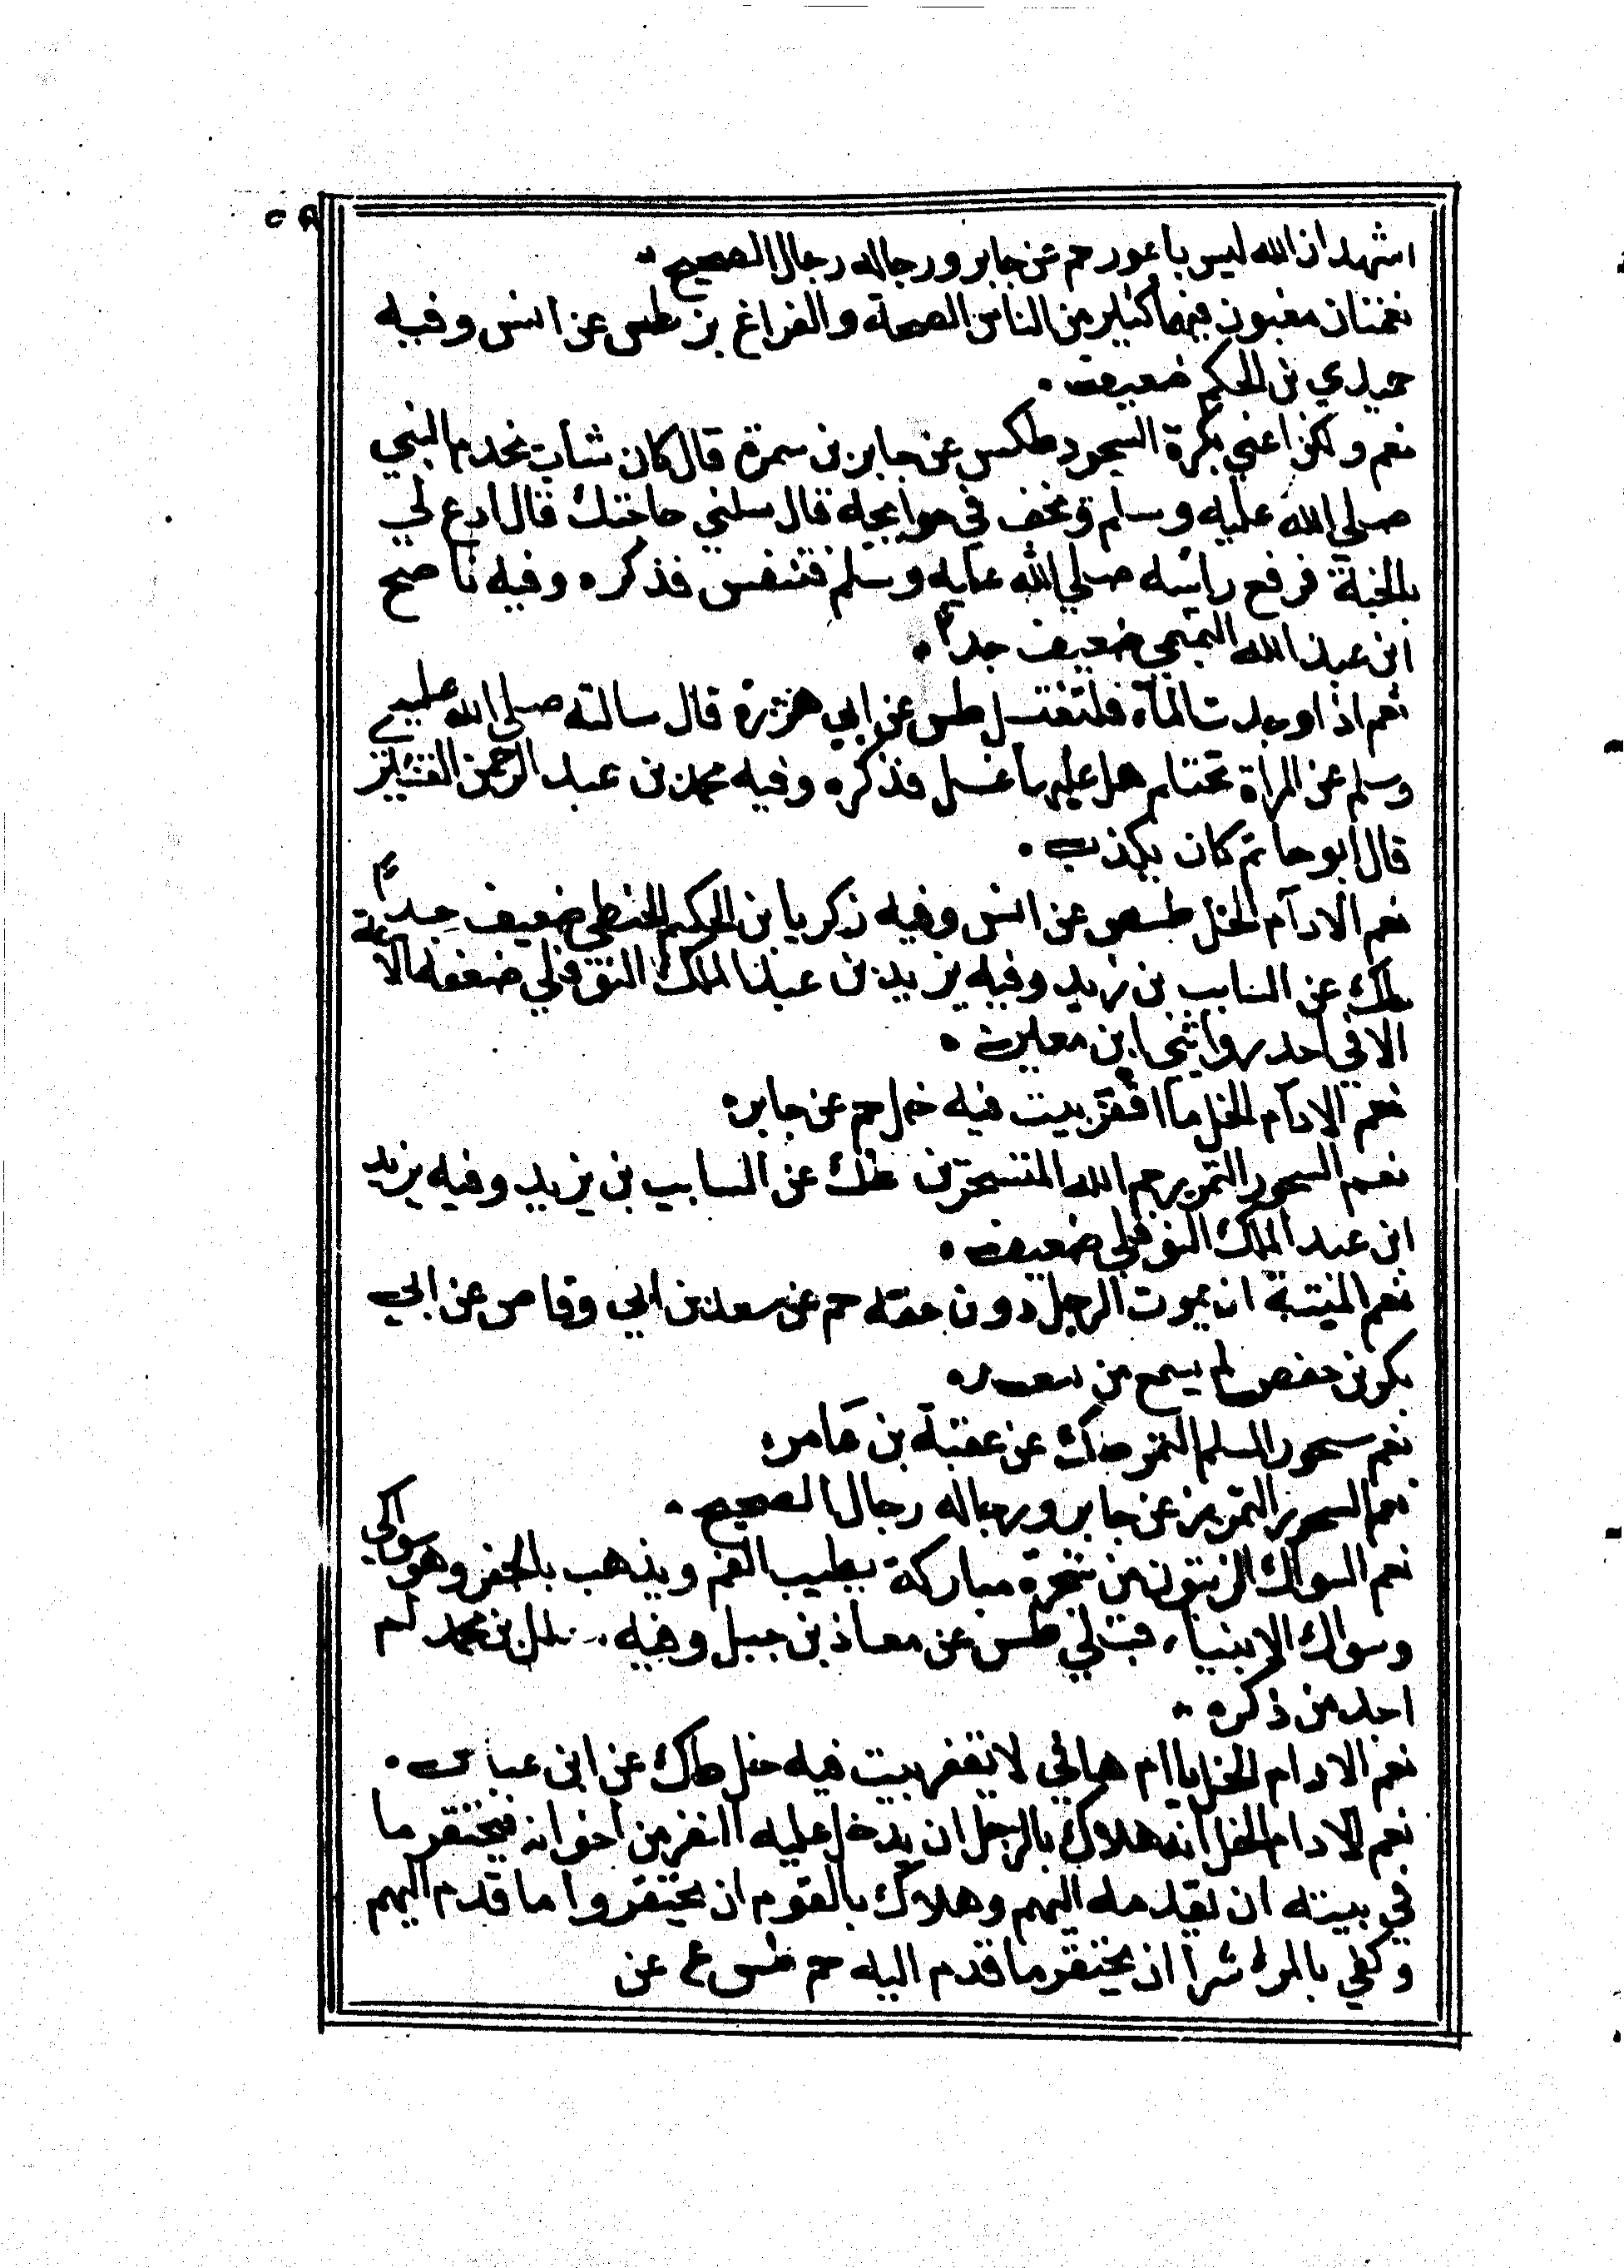 اشهد ان الله ليس باعور حم عن جابر ورجاله رجال الصحيح
نعمتان مغبون فيهما كثير من الناس الصحة والفراغ بز طس عن انس وفيه
حميدي بن الحكم ضعيف
نعم ولكن اعني بكثرة السجود طكس عن جابر بن سمرة قال كان شاب يخدم النبي
صلي الله عليه وسلم ويخف في حوايجه قال سلني حاجتك قال ادع لي
بالجنة فرفع راسه صلي الله عليه وسلم فتنفس فذكره وفيه ناصح
ابن عبد الله التميمي ضعيف جداً
نعم اذا وجدت المآء فلتغتسل طس عن ابي هريرة قال سالته صلي الله عليه
وسلم عن المراة تحتلم هل عليها غسل فذكره وفيه محمد بن عبد الرحمن القشيري
قال ابو حاتم كان يكذب
نعم الادآم الخل طسص عن انس وفيه زكريا بن الحكم الحنطي ضعيف جداً
طك عن السايب بن يزيد وفيه يزيد بن عبد الملك النوفلي ضعفه الائمة
الا في احد روايتي ابن معين
نعم الادآم الخل ما اقفر بيت فيه خل حم عن جابر
نعم السحور التمر يرحم الله المتسحرين طك عن السايب بن يزيد وفيه يزيد
ابن عبد الملك النوفلي ضعيف
نعم الميتة ان يموت الرجل دون حقه حم عن سعد بن ابي وقاص عن ابي
بكر بن حفص لم يسمع من سعد
نعم سحور المسلم التمر طك عن عقبة بن عامر
نعم السحور التمر بز عن جابر ورجاله رجال الصحيح
نعم السواك الزيتون من شجرة مباركة يطيب الفم ويذهب بالحفر وهو سواكي
وسواك الانبياء قبلي طس عن معاذ بن جبل وفيه بن محمد لم
اجد من ذكره
نعم الادام الخل يا ام هاني لا يقفر بيت فيه خل طك عن ابن عباس
نعم الادام الخل انه هلاك بالرجل ان يدخل عليه النفر من اخوانه فيحتقر ما
في بيته ان يقدمه اليهم وهلاك بالقوم ان يحتقروا ما قدم اليهم
وكفي بالمرء شرا ان يحتقر ما قدم اليه حم طس ع عن